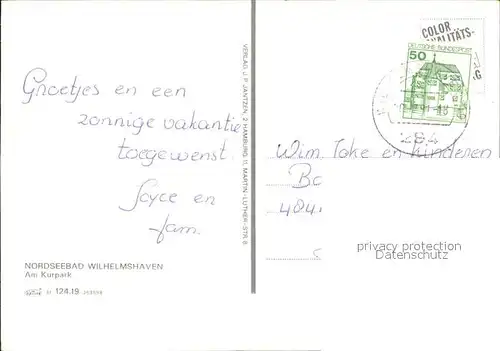 Groetjes en een
zonnige vakantie
toegewenst.
Joyce en
fam.
NORDSEEBAD WILHELMSHAVEN
Am Kurpark
124.19
VERLAG J. P. JANTZEN, 2 HAMBURG 11, MARTIN-LUTHER-STR. 8
COLOR
QUALITÄTS-
DEUTSCHE BUNDESPOST
50
Wim Toke en kinderen
privacy protection
© ANSIKTSKARTEN